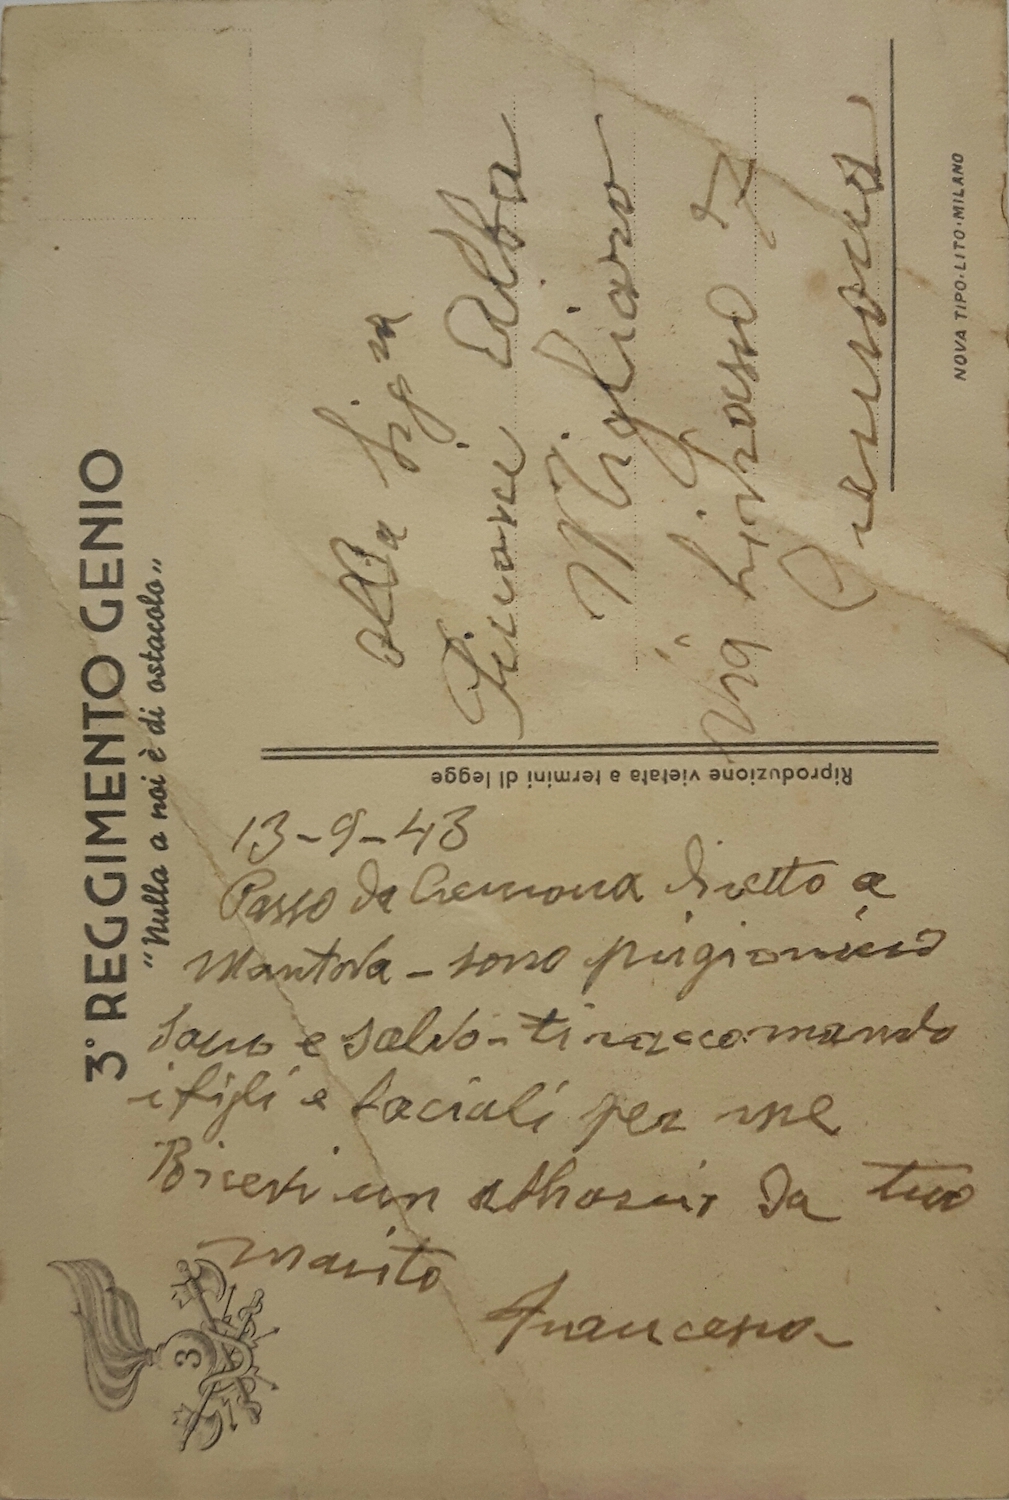 3° REGGIMENTO GENIO
"Nulla a noi è di ostacolo"
13-9-43
Passo da Cremona diretto a
Mantova - sono prigioniero
sano e salvo - ti raccomando
i figli e baciali per me
Ricevi un abbraccio da tuo
marito
Francesco
Riproduzione vietata a termini di legge
Alla Sig.ra
Alba
Migliaro
Via 7
Genova
NOVA TIPO-LITO-MILANO
3